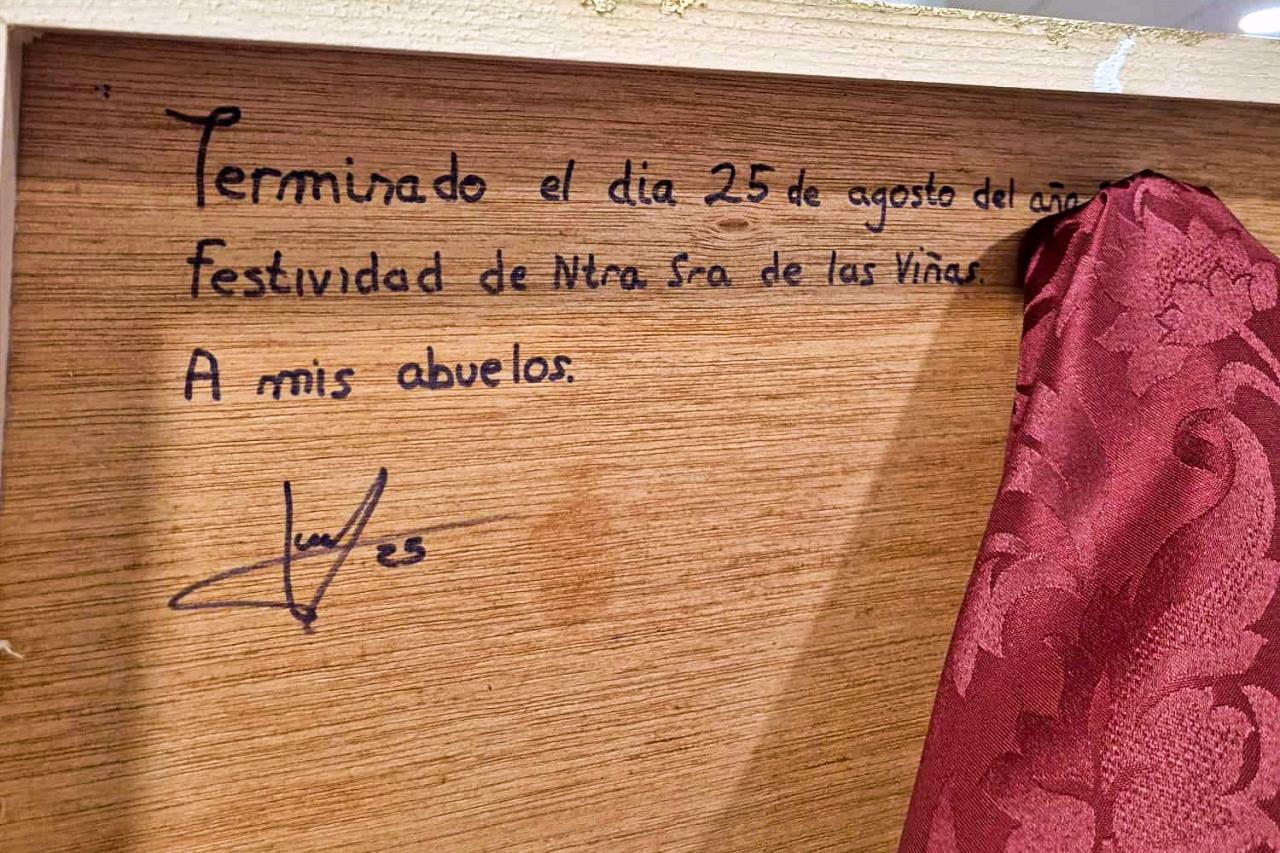 Terminado el dia 25 de agosto del año
festividad de Ntra Sra de las Viñas.
A mis abuelos.
25